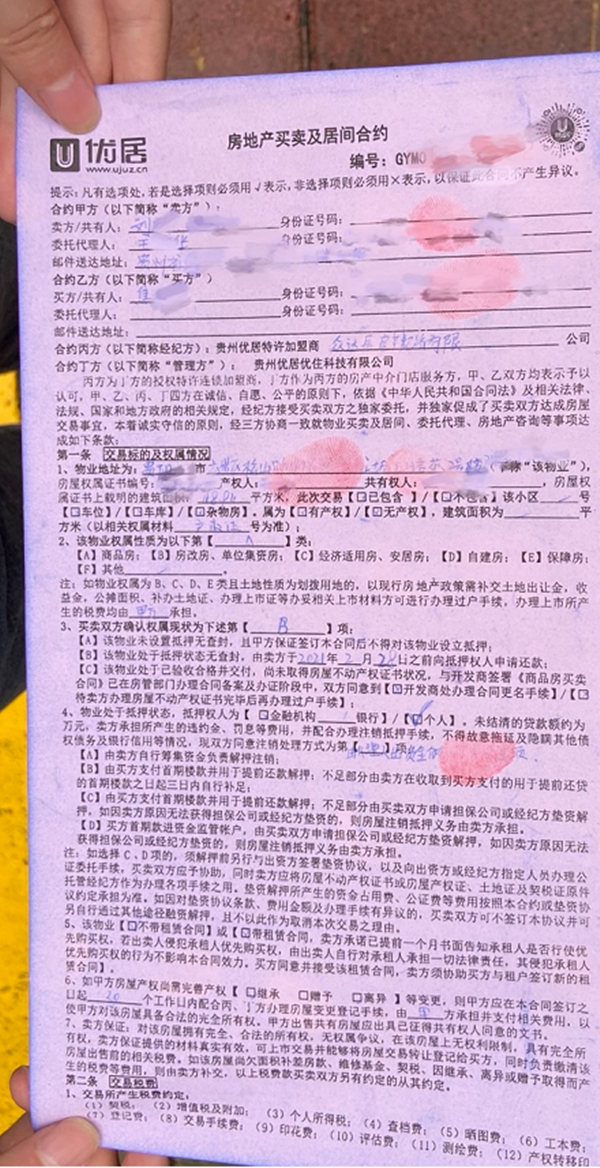 优居
www.ujuz.cn
房地产买卖及居间合约
编号：GYM0
提示：凡有选项处，若是选择项则必须用√表示，非选择项则必须用×表示，以保证此合同不产生异议。
合约甲方（以下简称“卖方”）：
卖方/共有人：刘 身份证号码：
委托代理人：王 华 身份证号码：
邮件送达地址：
合约乙方（以下简称“买方”）
买方/共有人： 身份证号码：
委托代理人： 身份证号码：
邮件送达地址：
合约丙方（以下简称经纪方）：贵州优居特许加盟商 公司
合约丁方（以下简称“管理方”）： 贵州优居优住科技有限公司
丙方为丁方的授权特许连锁加盟商，丁方作为丙方的房产中介门店服务方，甲、乙双方均表示予以
认可，甲、乙、丙、丁四方在诚信、自愿、公平的原则下，依据《中华人民共和国合同法》及相关法律、
法规、国家和地方政府的相关规定，经纪方接受买卖双方之独家委托，并独家促成了买卖双方达成房屋
交易事宜，本着诚实守信的原则，经三方协商一致就物业买卖及居间、委托代理、房地产咨询等事项达
成如下条款：
第一条 交易标的及权属情况
1、物业地址为： 市 “该物业”），
房屋权属证书编号： 产权人： 共有权人： ，房屋权
属证书上载明的建筑面积： 平方米，此次交易【□已包含】/【□不包含】该小区 号
【□车位】/【□车库】/【□杂物房】。属为【□有产权】/【□无产权】，建筑面积为 平
方米（以相关权属材料 号为准）；
2、该物业权属性质为以下第【 A 】类：
【A】商品房；【B】房改房、单位集资房；【C】经济适用房、安居房；【D】自建房；【E】保障房；
【F】其他 。
注：如物业权属为 B、C、D、E 类且土地性质为划拨用地的，以现行房地产政策需补交土地出让金，收
益金、公摊面积、补办土地证、办理上市证等办妥相关上市材料方可进行办理过户手续，办理上市所产
生的税费均由 承担。
3、买卖双方确认权属现状为下述第【 B 】项：
【A】该物业未设置抵押无查封，且甲方保证签订本合同后不得对该物业设立抵押；
【B】该物业处于抵押状态无查封，由卖方于2021年2月 日之前向抵押权人申请还款；
【C】该物业处于已验收合格并交付，尚未取得房屋不动产权证书状况，与开发商签署《商品房买卖
合同》已在房管部门办理合同备案及办证阶段中，双方同意到【□开发商处办理合同更名手续】/【□
待卖方办理房屋不动产权证书完毕后再办理过户手续】；
4、物业处于抵押状态，抵押权人为【□金融机构 银行】/【□个人】。未结清的贷款额约为
万元，卖方承担所产生的违约金、罚息等费用，并配合办理注销抵押手续，不得故意拖延及隐瞒其他债
权债务及银行信用等情况，现双方同意注销处理方式为第【 】项：
【A】由卖方自行筹集资金负责解押注销；
【B】由买方支付首期楼款并用于提前还款解押；不足部分由卖方在收取到买方支付的用于提前还贷
的首期楼款之日起三日内自行补足；
【C】由买方支付首期楼款并用于提前还款解押；不足部分由买卖双方申请担保公司或经纪方垫资解
押，如因卖方原因无法获得担保公司或经纪方垫资的，则房屋注销抵押义务由卖方承担。
【D】买方首期款进资金监管帐户，由买卖双方申请担保公司或经纪方垫资解押，如因卖方原因无法
获得担保公司或经纪方垫资的，则房屋注销抵押义务由卖方承担。
注：如选择 C、D 项的，须解押前另行与出资方签署垫资协议，以及向出资方或经纪方指定人员办理公
证委托手续，买卖双方应予协助，同时卖方应将房屋不动产权证书或房屋产权证、土地证及契税证原件
托管经纪方作为办理各项手续之用。垫资解押所产生的资金占用费、公证费等费用按照本合约或垫资协
议约定承担为准。如因对垫资协议条款、费用金额及办理手续有异议的，买卖双方可不签订本协议并可
另自行通过其他途径融资解押，且不以此作为取消本次交易之理由。
5、该物业【□不带租赁合同】或【□带租赁合同，卖方承诺已提前一个月书面告知承租人是否行使优
先购买权，若出卖人侵犯承租人优先购买权，由出卖人自行对承租人承担一切法律责任，其侵犯承租人
优先购买权的行为不影响本合同效力。买方同意并接受该租赁合同，卖方须协助买方与租户签订新的租
赁合同】。
6、如甲方房屋产权尚需完善产权【 □继承 □赠予 □离异 】等变更，则甲方应在本合同签订之
日起 20 个工作日内配合丙、丁方办理房屋变更登记手续，由 方承担并支付相关费用，以
使甲方对该房屋具备合法的完全所有权。甲方出售共有房屋应出具已征得共有权人同意的文书。
7、卖方保证：对该房屋拥有完全、合法的所有权，无权属争议，在该房屋上无权利限制，具有完全所
有权，卖方保证提供的材料真实有效，可上市交易并能够将房屋交易转让登记给买方，同时负责缴清该
房屋出售前的相关税费。如该房屋尚欠面积补差房款、维修基金、契税、因继承、离异或赠予取得而产
生的税费等费用，则由卖方补交，以上税费款买卖双方另有约定的从其约定。
第二条 交易税费
1、交易所产生税费约定：
（1）契税； （2）增值税及附加； （3）个人所得税；（4）查档费；（5）晒图费；（6）工本费；
（7）登记费；（8）交易手续费；（9）印花费；（10）评估费；（11）测绘费；（12）产权转移印